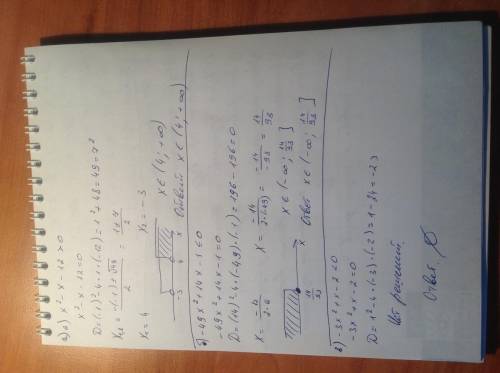 а) x² - x - 12 > 0
x² - x - 12 = 0
D = (-1)² - 4·1·(-12) = 1² + 48 = 49 = 7²
x₁,₂ = -(-1) ± √49 / 2 = 1 ± 7 / 2
x₁ = 4 x₂ = -3
-3 4 x
x ∈ (4; +∞)
Ответ: x ∈ (4; +∞)
б) -49x² + 14x - 1 ≤ 0
-49x² + 14x - 1 = 0
D = (14)² - 4·(-49)·(-1) = 196 - 196 = 0
x = -b / 2·a x = -14 / 2·(-49) = -14 / -98 = 14 / 98
14/98 x
x ∈ (-∞; 14/98]
Ответ x ∈ (-∞; 14/98]
в) -3x² + x - 2 < 0
-3x² + x - 2 = 0
D = 1² - 4·(-3)·(-2) = 1 - 24 = -23
Нет решений
Ответ: ∅